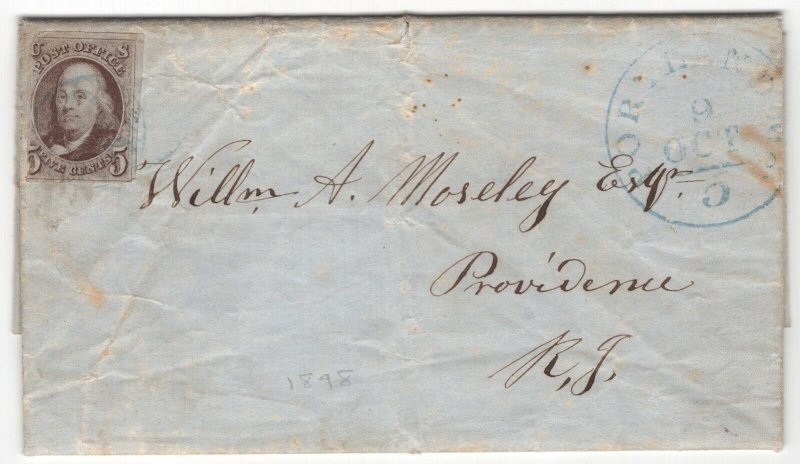 U S
POST OFFICE
5 FIVE CENTS 5
9
OCT
5
Willm A. Moseley Esqr
Providence
R.I.
1898